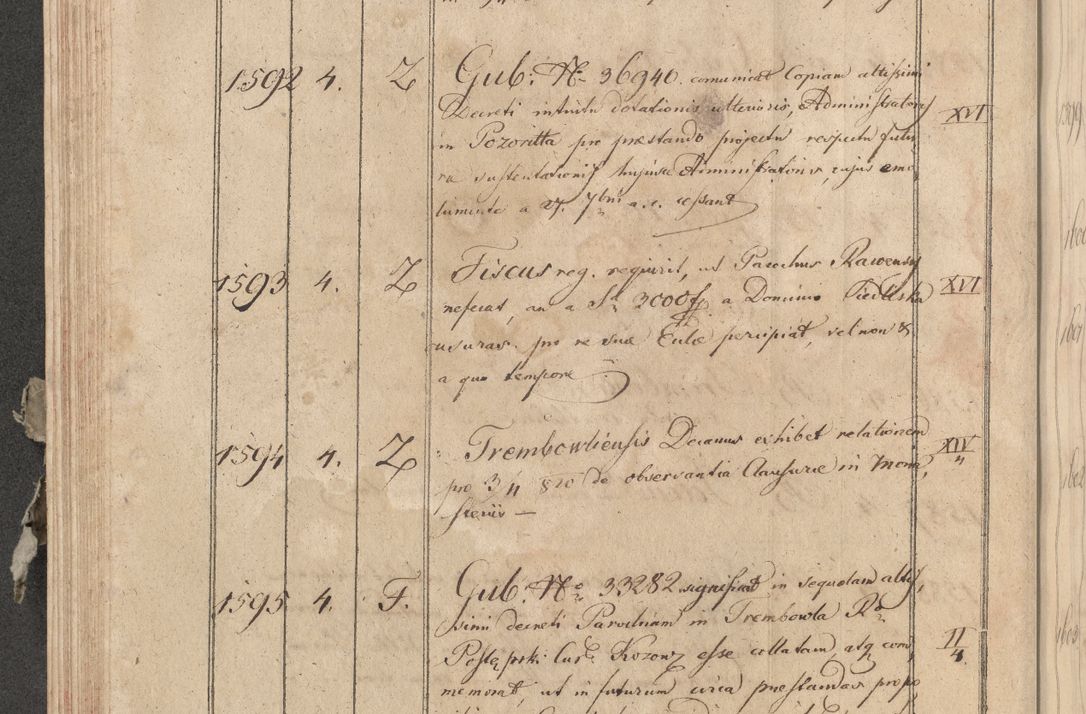 1592 4. Z Gub: No 36940. comunicat Copiam altissimi
Decreti intuitu dotationis ulterioris, Administratoris XVI
in Pozoritta pro præstando projectu respectu futu,
ræ sustentationis hujus Administrationis, cujus emo,
lumenta a 27. 7bris a. c. cessant
1593 4. Z Fiscus reg. requirit, ut Parochus Rawensis XVI
referat, an a 3000 f a Domino
usuras pro re suæ Eccle percipiat, vel non &
a quo tempore
1594 4. Z Trembowliensis Decanus exhibet relationem XIV/4
pro 3/4 820 de observantia Clausuræ in Mona,
steriis —
1595 4. F. Gub: No 33282 significat in sequelam altis,
simi decreti Parochiam in Trembowla Rdo II/4
esse collatam, atq com,
memorat, ut in futurum circa præstandas propo